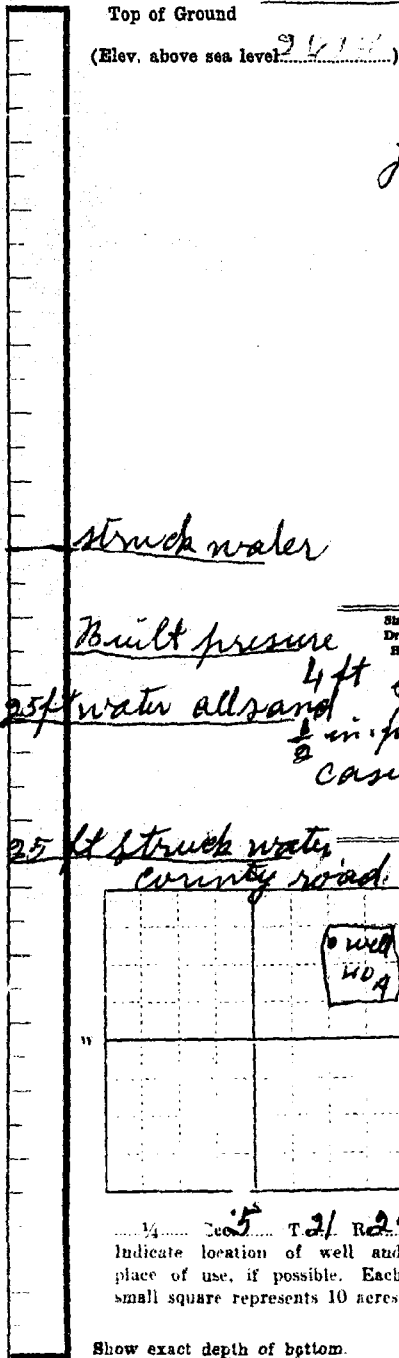 Top of Ground
(Elev. above sea level)
struck water
Built presure
4 ft
25 ft water all sand
in.
25 ft struck water
county road.
• well
no A
W
1/4 Sec 25 T. 21 R.
Indicate location of well and
place of use, if possible. Each
small square represents 10 acres
Show exact depth of bottom.